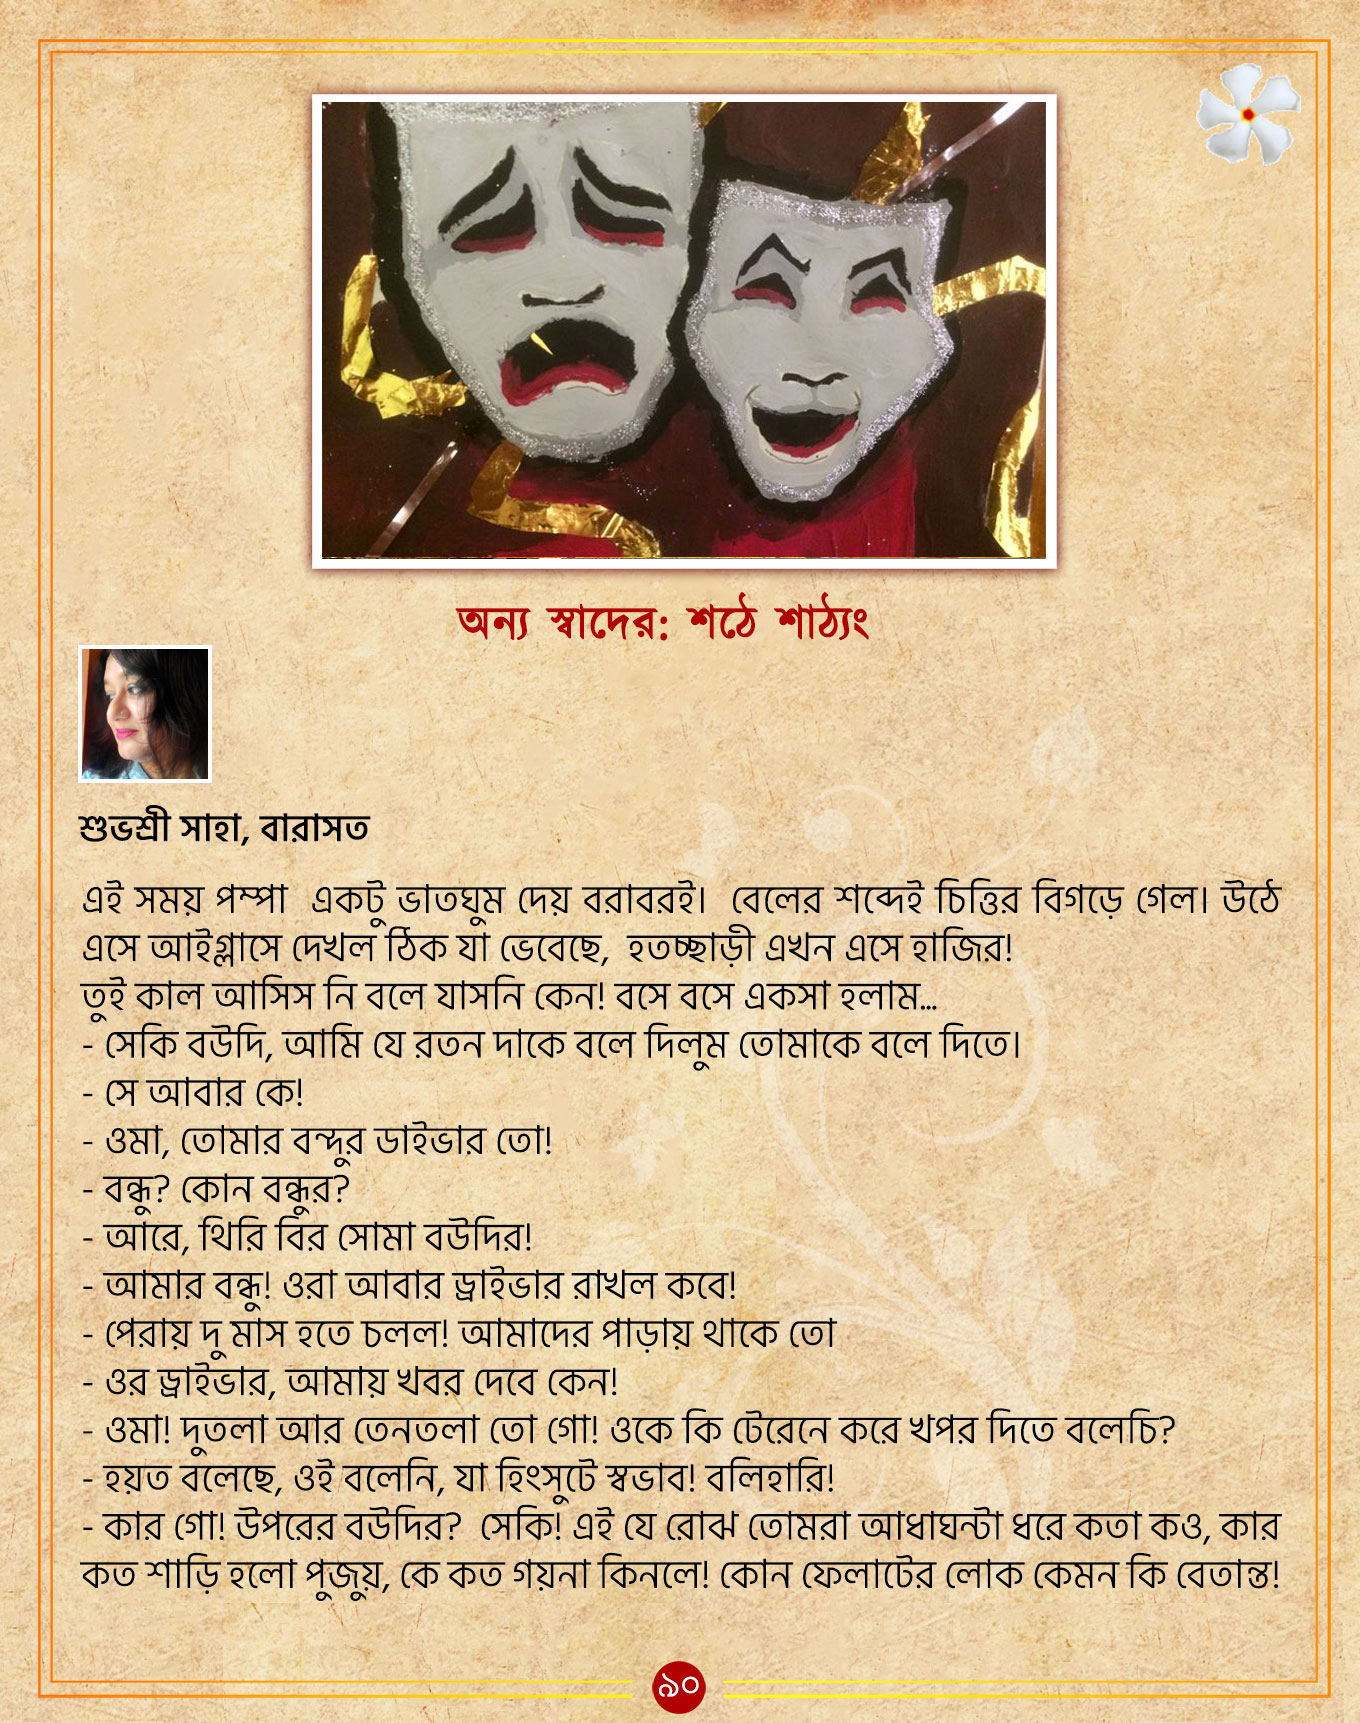 অন্য স্বাদের: শঠে শাঠ্যং
শুভশ্রী সাহা, বারাসত
এই সময় পম্পা একটু ভাতঘুম দেয় বরাবরই। বেলের শব্দেই চিত্তির বিগড়ে গেল। উঠে
এসে আইগ্লাসে দেখল ঠিক যা ভেবেছে, হতচ্ছাড়ী এখন এসে হাজির!
তুই কাল আসিস নি বলে যাসনি কেন! বসে বসে একসা হলাম...
- সেকি বউদি, আমি যে রতন দাকে বলে দিলুম তোমাকে বলে দিতে।
- সে আবার কে!
- ওমা, তোমার বন্দুর ডাইভার তো!
- বন্ধু? কোন বন্ধুর?
- আরে, থিরি বির সোমা বউদির!
- আমার বন্ধু! ওরা আবার ড্রাইভার রাখল কবে!
- পেরায় দু মাস হতে চলল! আমাদের পাড়ায় থাকে তো
- ওর ড্রাইভার, আমায় খবর দেবে কেন!
- ওমা! দুতলা আর তেনতলা তো গো! ওকে কি টেরেনে করে খপর দিতে বলেচি?
- হয়ত বলেছে, ওই বলেনি, যা হিংসুটে স্বভাব! বলিহারি!
- কার গো! উপরের বউদির? সেকি! এই যে রোঝ তোমরা আধাঘন্টা ধরে কতা কও, কার
কত শাড়ি হলো পুজুয়, কে কত গয়না কিনলে! কোন ফেলাটের লোক কেমন কি বেতান্ত!
৯০